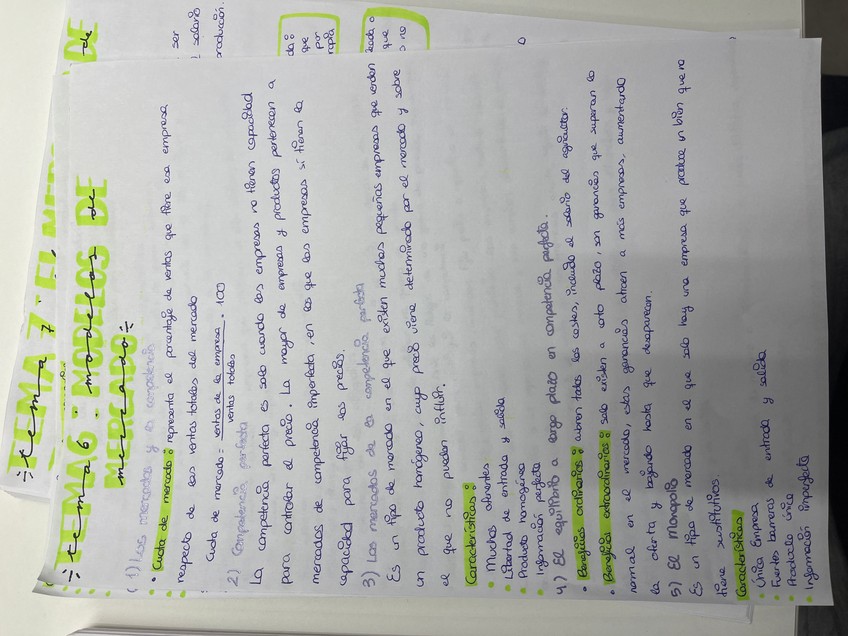 TEMA 7: EL
tema 7
TEMA 6: MODELOS DE
tema 6: modelos de
MERCADO
mercado
(1) Los mercados y la competencia
• Cuota de mercado: representa el porcentaje de ventas que tiene esa empresa
respecto de las ventas totales del mercado
Cuota de mercado = ventas de la empresa . 100
ventas totales
2) Competencia perfecta
La competencia perfecta es solo cuando las empresas no tienen capacidad
para controlar el precio. La mayor de empresas y productos pertenecen a
mercados de competencia imperfecta, en los que las empresas sí tienen la
capacidad para fijar los precios.
3) Los mercados de la competencia perfecta
Es un tipo de mercado en el que existen muchas pequeñas empresas que venden
un producto homogéneo, cuyo precio viene determinado por el mercado y sobre
el que no pueden influir.
Características:
• Muchos oferentes
• Libertad de entrada y salida
• Producto homogéneo
• Información perfecta
4) El equilibrio a largo plazo en competencia perfecta.
• Beneficios ordinarios: cubren todos los costes, incluido el salario del agricultor.
• Beneficios extraordinarios: solo existen a corto plazo, son ganancias que superan lo
normal en el mercado, estas ganancias atraen a más empresas, aumentando
la oferta y bajando hasta que desaparecen.
5) El Monopolio
Es un tipo de mercado en el que solo hay una empresa que produce un bien que no
tiene sustitutivos.
Características
• Única Empresa
• Fuertes barreras de entrada y salida
• Producto único
• Información imperfecta
ser
salario
producción.
que
por
que
no
DE
de